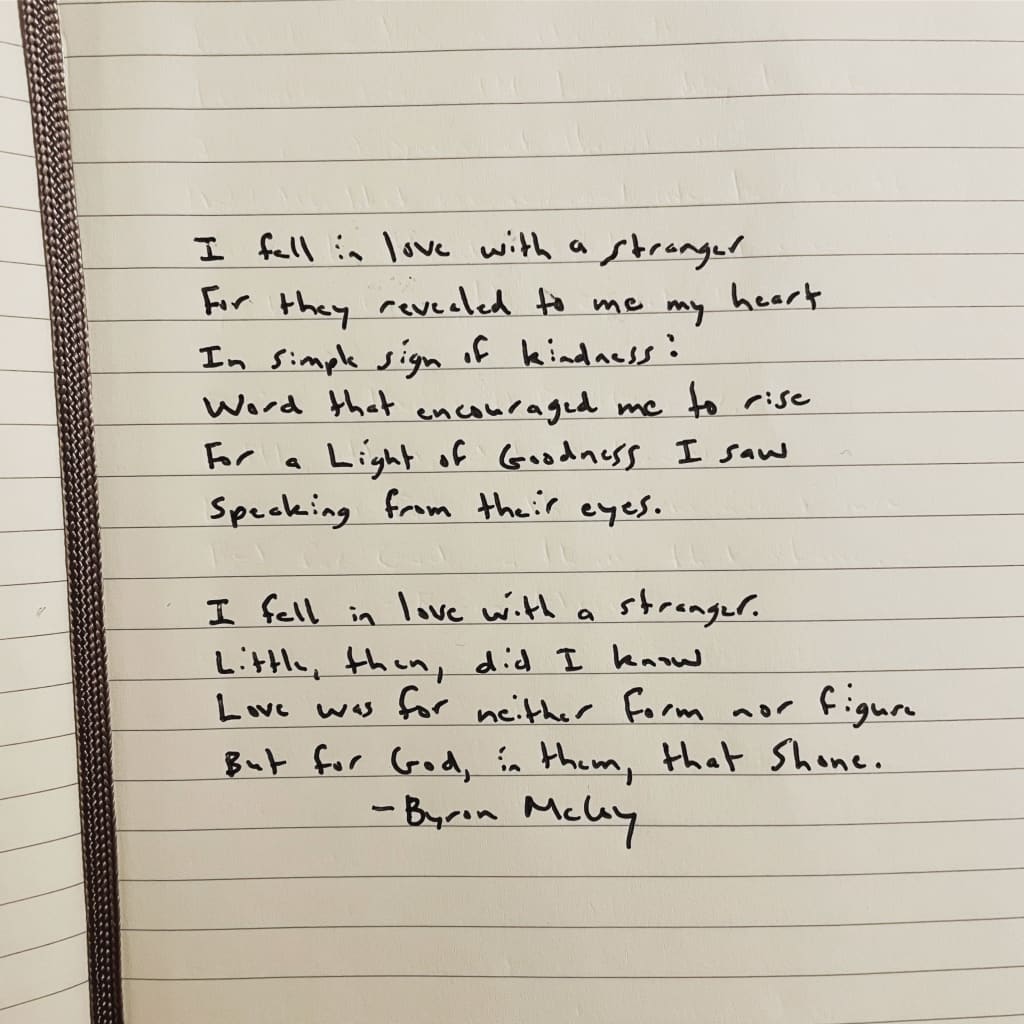 I fell in love with a stranger
For they revealed to me my heart
In simple sign of kindness:
Word that encouraged me to rise
For a Light of Goodness I saw
Speaking from their eyes.
I fell in love with a stranger.
Little, then, did I know
Love was for neither form nor figure
But for God, in them, that Shone.
- Byron